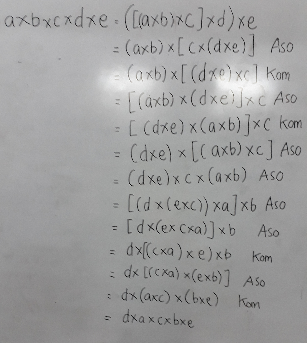 a×b×c×d×e = ([(a×b)×c]×d)×e
= (a×b)×[c×(d×e)] Aso
= (a×b)×[(d×e)×c] Kom
= [(a×b)×(d×e)]×c Aso
= [(d×e)×(a×b)]×c Kom
= (d×e)×[(a×b)×c] Aso
= (d×e)×c×(a×b) Aso
= [(d×(e×c))×a]×b Aso
= [d×(e×c×a)]×b Aso
= d×[(c×a)×e)×b Kom
= d×[(c×a)×(e×b)] Aso
= d×(a×c)×(b×e) Kom
= d×a×c×b×e